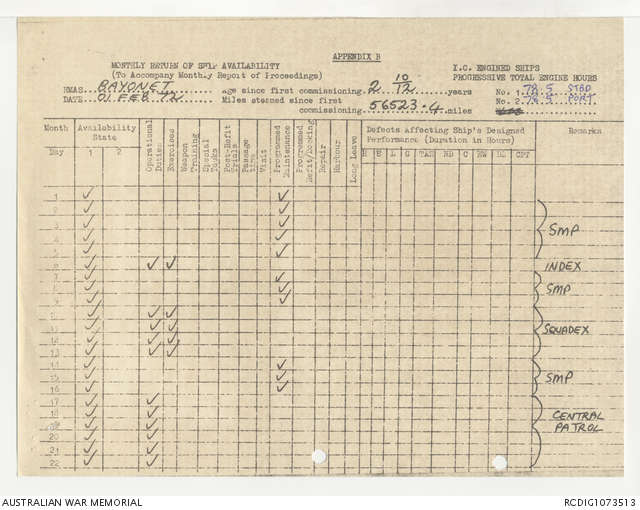 APPENDIX B
MONTHLY RETURN OF SHIP AVAILABILITY
(To Accompany Monthly Report of Proceedings)
I.C. ENGINED SHIPS
PROGRESSIVE TOTAL ENGINE HOURS
HMAS BAYONET age since first commissioning 2 10/12 years
No. 1. 78.5 STBD
DATE 01 FEB 72 Miles steamed since first commissioning 56523.4 miles
No. 2. 76.5 PORT
Month Availability State Operational Duties Exercises Weapon Training Special Tasks Post-Refit Trials Passage Visit Programmed Maintenance Programmed Refit/Docking Repair Harbour Long Leave Defects Affecting Ship's Designed Performance (Duration in Hours) Remarks
Day 1 2 H E L G TAS ND C RW DL CPT
1 ✓ ✓
2 ✓ ✓
3 ✓ ✓ SMP
4 ✓ ✓
5 ✓ ✓
6 ✓ ✓ ✓ INDEX
7 ✓ ✓
8 ✓ ✓ SMP
9 ✓ ✓
10 ✓ ✓ ✓
11 ✓ ✓ ✓ SQUADEX
12 ✓ ✓ ✓
13 ✓ ✓ ✓
14 ✓ ✓
15 ✓ ✓ SMP
16 ✓ ✓
17 ✓ ✓
18 ✓ ✓ CENTRAL
19 ✓ ✓ PATROL
20 ✓ ✓
21 ✓ ✓
22 ✓ ✓
AUSTRALIAN WAR MEMORIAL
RCDIG1073513